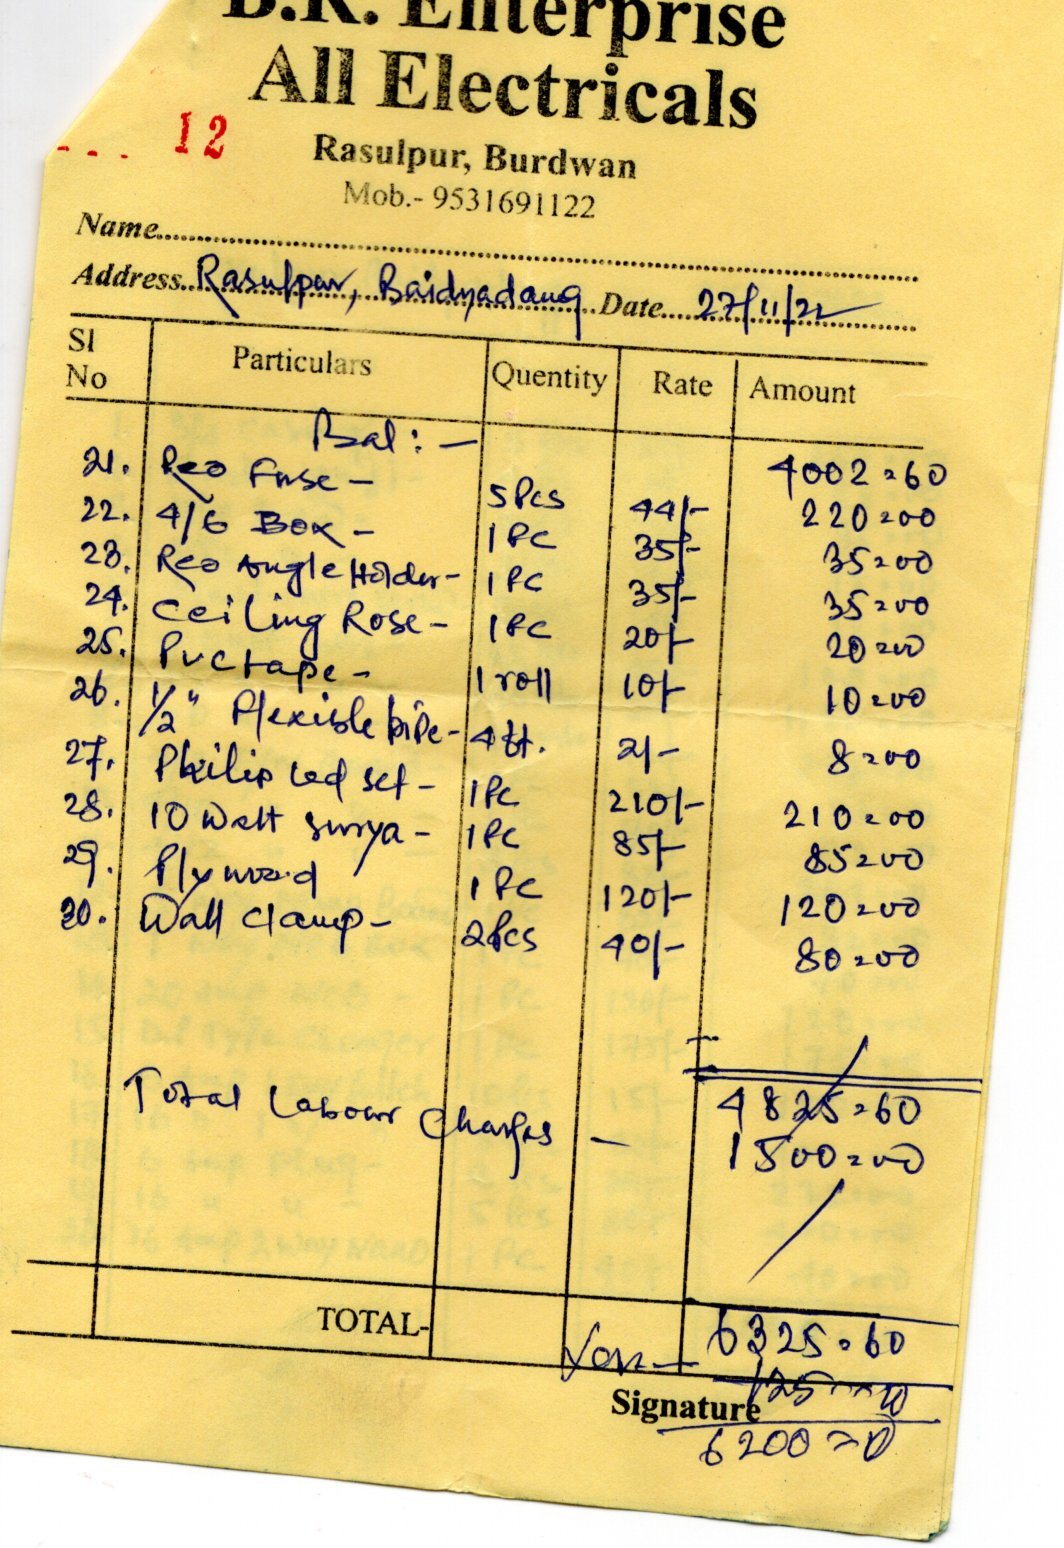 B.R. Enterprise
All Electricals
12
Rasulpur, Burdwan
Mob.- 9531691122
Name
Address Rasulpur, Baidyadang Date 27/11/22
Sl No Particulars Quentity Rate Amount
Bal:- 4002=60
21. Reo Fuse - 5 Pcs 44/- 220=00
22. 4/6 Box - 1 PC 35/- 35=00
23. Reo Angle Holder - 1 PC 35/- 35=00
24. Ceiling Rose - 1 PC 20/- 20=00
25. PVC tape - 1 roll 10/- 10=00
26. 1/2" Flexible pipe - 4 ft. 2/- 8=00
27. Philip Led set - 1 PC 210/- 210=00
28. 10 Watt Surya - 1 PC 85/- 85=00
29. Plywood 1 PC 120/- 120=00
30. Wall Clamp - 2 Pcs 40/- 80=00
4825=60
Total Labour Charges - 1500=00
TOTAL- 6325=60
125
Signature
6200=0